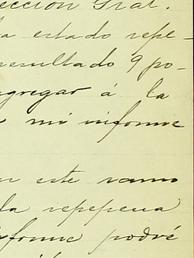 ección Gral.
a estado repe-
resultado 9 po-
agregar á la
mi informe
este ramo
la repeperia
nforme podré